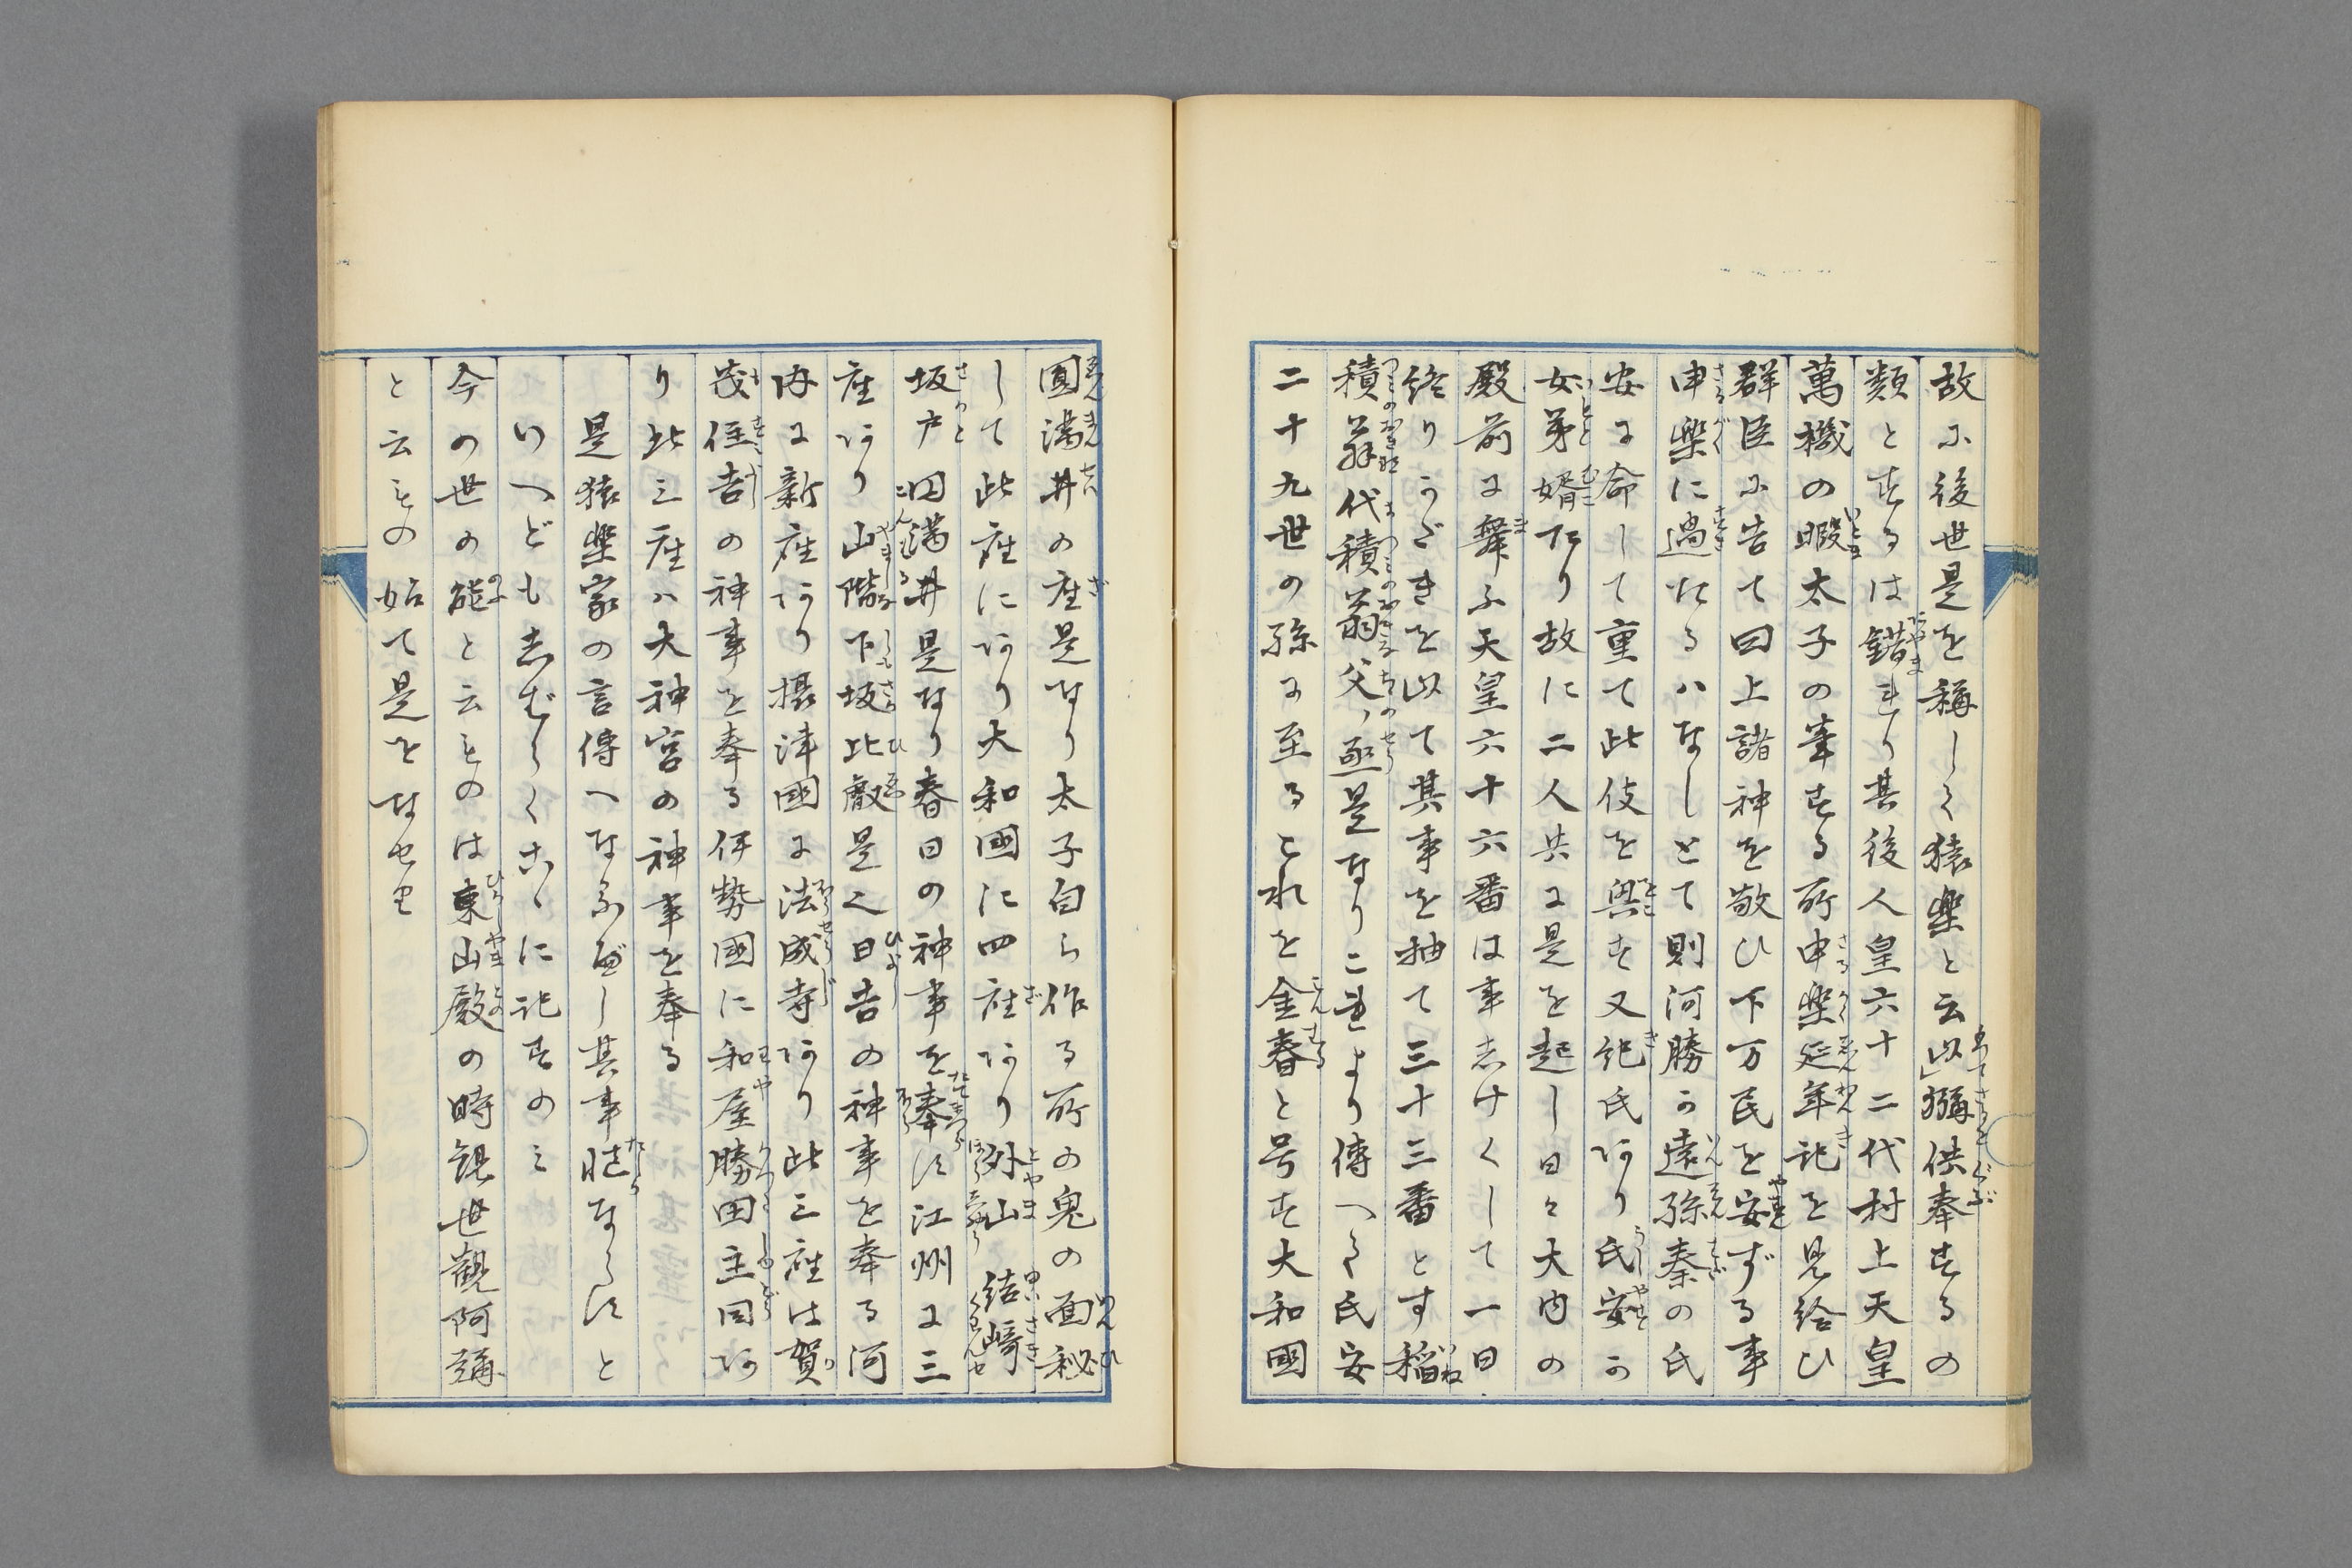 故に後世是を稱しく猿樂と云以獼供奉するの
類とするは錯れり其後人皇六十二代村上天皇
萬機の暇太子の筆する所申樂延年記を見給ひ
群臣に告て曰上諸神を敬ひ下万民を安ずる事
申樂に過たるハなしとて則河勝の遠孫秦の氏
安に命して重て此伎を興す又紀氏あり氏安の
女弟婿たり故に二人共に是を起し日々大内の
殿前に舞ふ天皇六十六番は事しけくして一日
終りうどきを以て其事を抽て三十三番とす稲
積翁代積翁父ノ亟是なりこれより傳へて氏安
二十九世の孫に至るこれを金春と号す大和國
圓満井の座是なり太子自ら作る所の鬼の面秘
して此座にあり大和國に四座あり外山 結﨑
坂戸 円満井是なり春日の神事を奉す江州に三
座あり山階下坂比叡是也日吉の神事を奉る河
内に新座あり摂津國に法成寺あり此三座は賀
茂住吉の神事を奉る伊勢國に和屋勝田主同あ
り此三座ハ大神宮の神事を奉る
是猿樂家の言傳へなるべし其事慥ならすと
いへども志ばらくこゝに記すのミ
今の世の能と云ものは東山殿の時観世觀阿彌
と云もの始て是をなせり